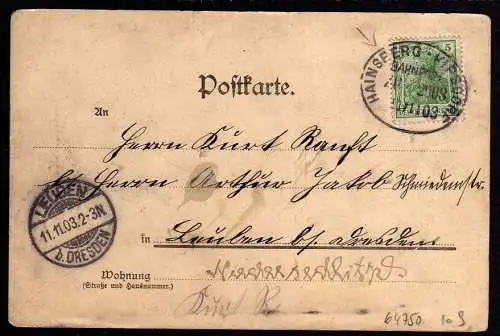 Postkarte.
HAINSBERG
BAHNP
11.11.03
5
An
Herrn Kurt Ranft
bei Herrn Arthur Jakob Schmiedemstr.
LEUBEN
11.11.03.2-3N
b. DRESDEN
in Leuben bei Dresden
Niedersedlitz
Wohnung
(Straße und Hausnummer.)
Kurt R
64750